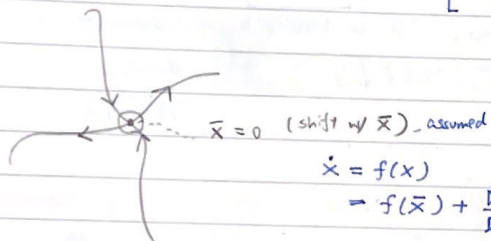 x̄ = 0 (shift w/ x̄) - assumed
ẋ = f(x)
= f(x̄) +